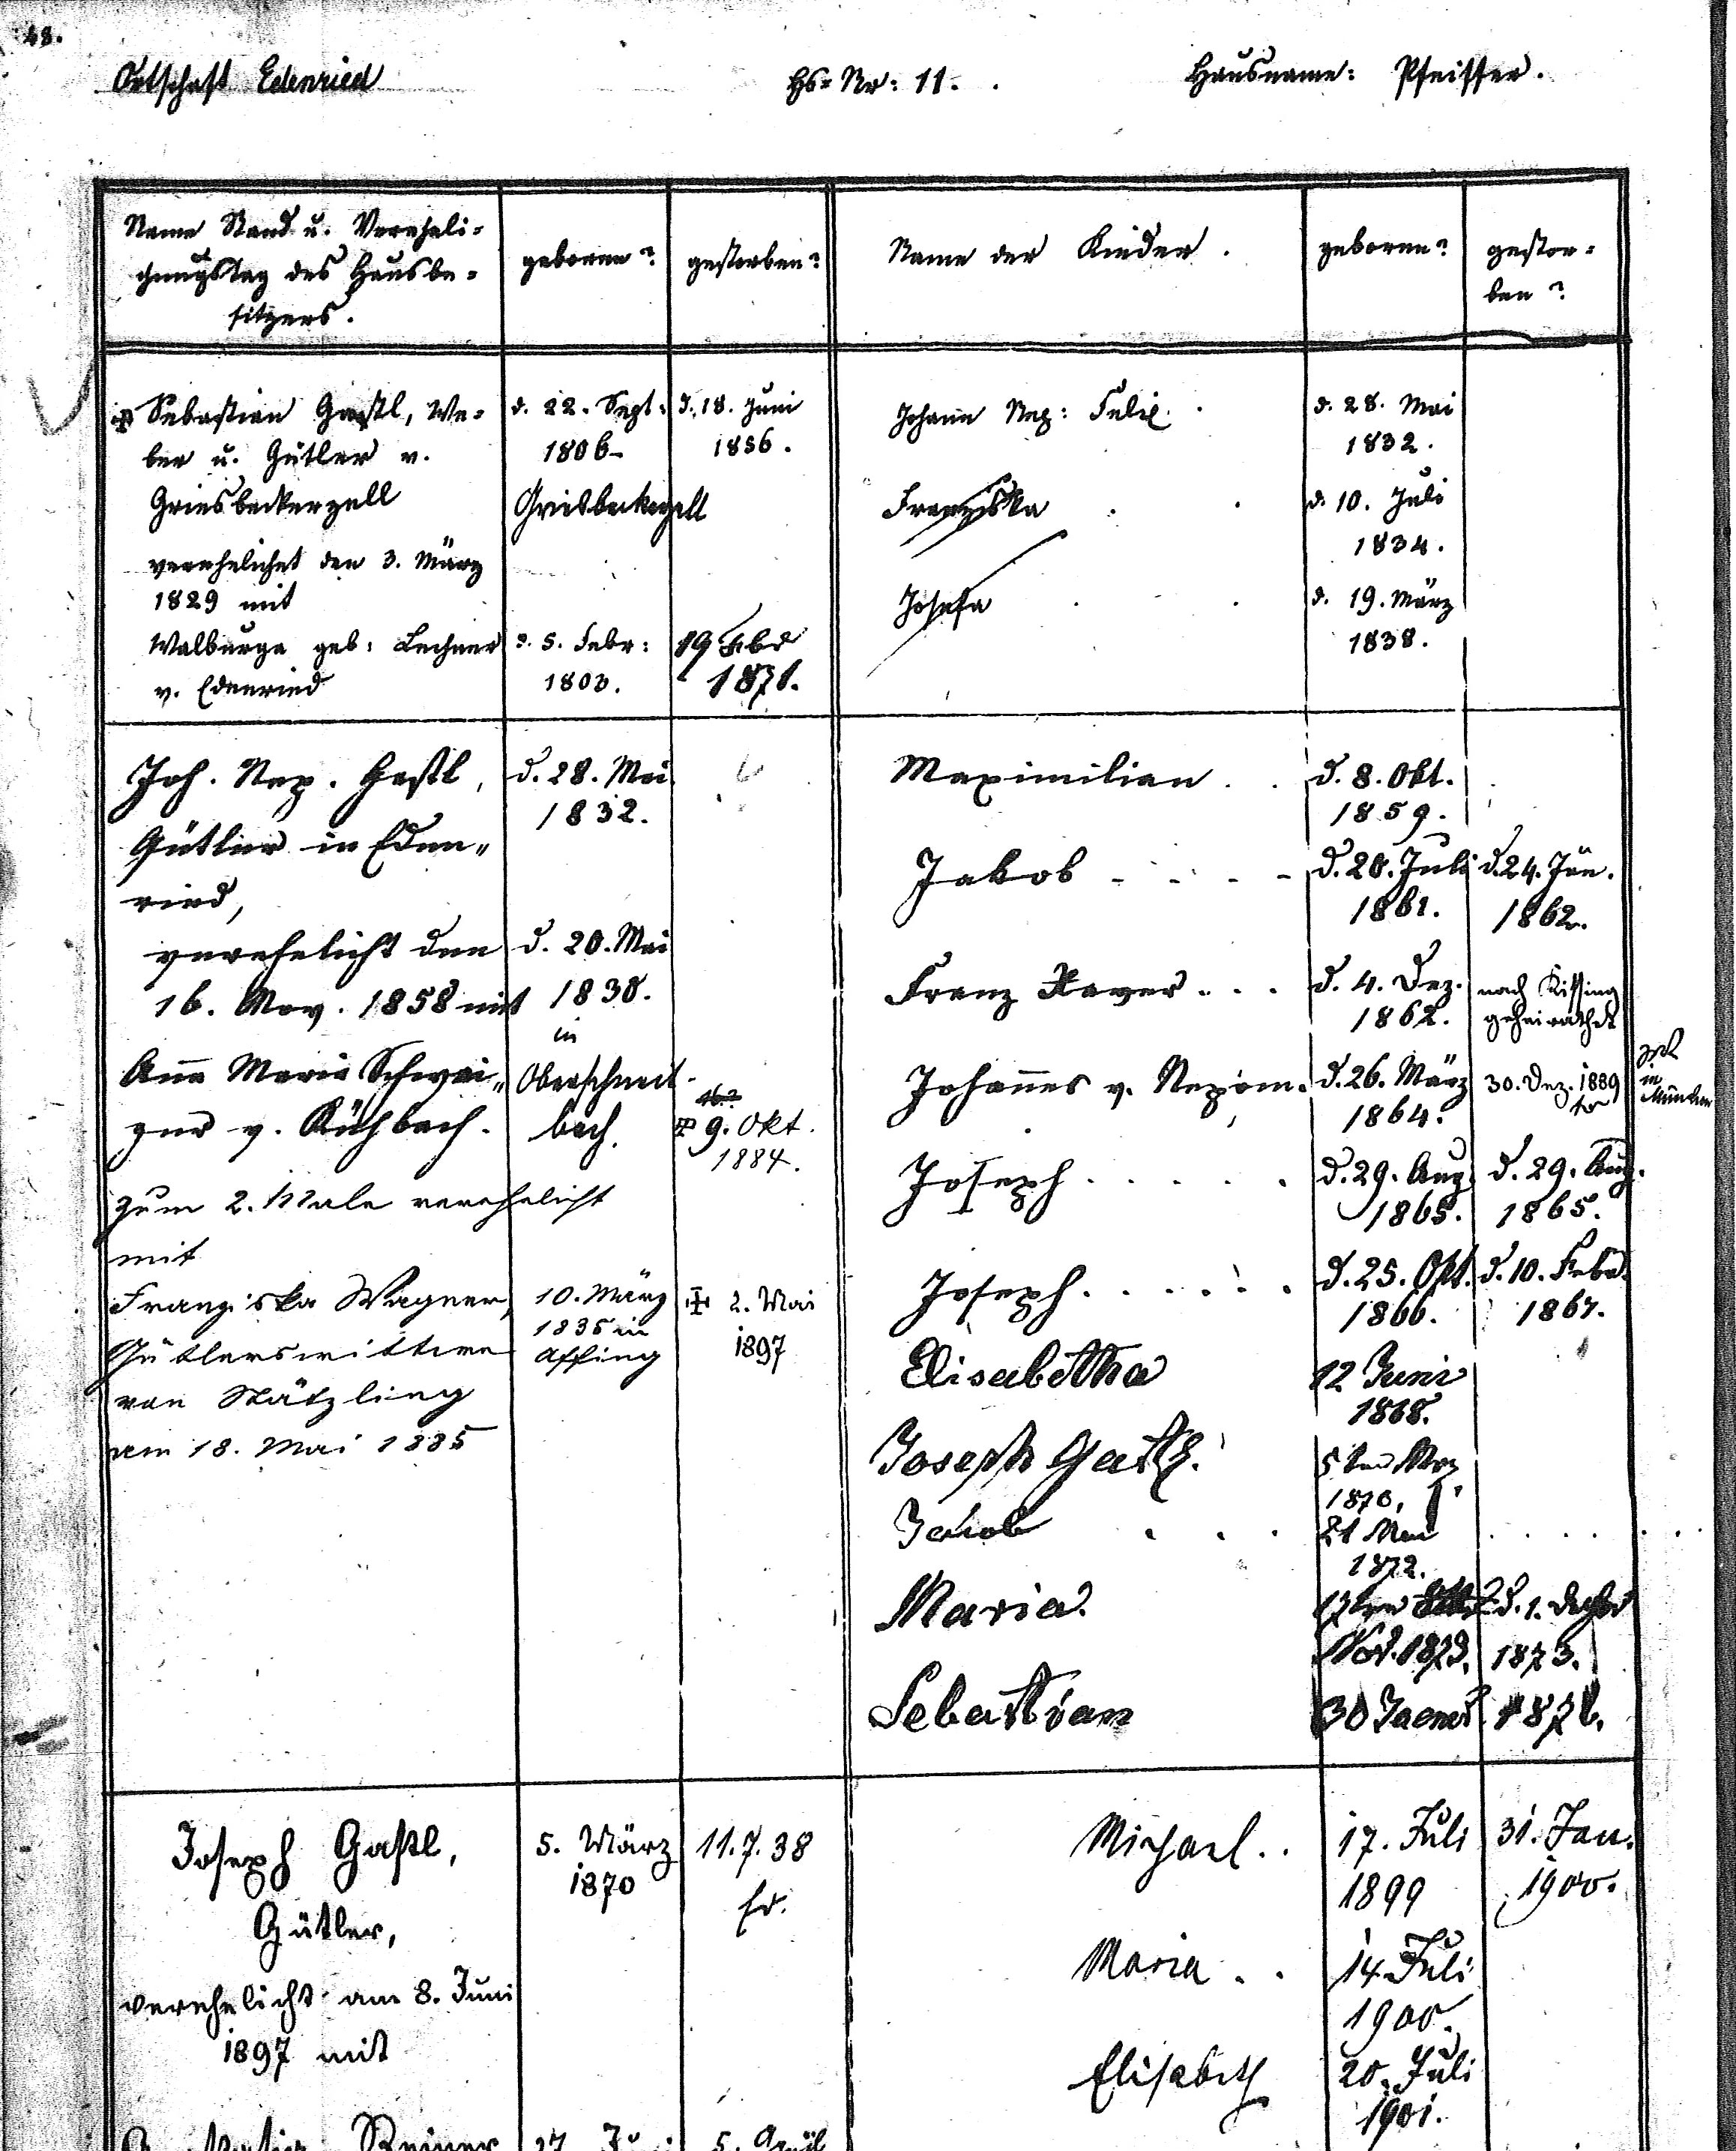 48.
Ortschaft Edenried
Hs=Nr: 11.
Hausname: Pfeiffer.
Name Stand u. Vereheli=
chungstag des Hausbe=
sitzers.
geboren?
gestorben?
Name der Kinder.
geboren?
gestor=
ben?
Sebastian Gastl, We=
ber u. Gütler v.
Griesbeckerzell
verehelichet den 3. März
1829 mit
Walburga geb: Lechner
v. Edenried
d. 22. Sept:
1806
Griesbeckerzell
d. 5. Febr:
1803.
d. 18. Juni
1856.
19 Feb
1871.
Johann Nep: Felix.
d. 28. Mai
1832.
Franziska
d. 10. Juli
1834.
Josefa
d. 19. März
1838.
Joh. Nep. Gastl,
Gütler in Eden„
ried,
verehelicht den
16. Nov. 1858 mit
Anna Maria Schwai„
ger v. Kühbach.
zum 2. Male verehelicht
mit
Franziska Wagner,
Gütlerswittwe
von Stätzling
am 18. Mai 1885
d. 28. Mai
1832.
d. 20. Mai
1838.
in
Oberschneit-
bach.
10. März
1835 in
Affing
9. Okt.
1884.
2. Mai
1897
Maximilian . .
d. 8. Okt.
1859.
Jakob - - - -
d. 20. Juli
1861.
d. 24. Jän.
1862.
Franz Xaver . . .
d. 4. Dez.
1862.
nach Kissing
geheirathet
Johannes v. Nepom.
d. 26. März
1864.
30. Dez. 1889
in
München
Joseph . . . . .
d. 29. Aug.
1865.
d. 29. Aug.
1865.
Joseph . . . . . .
d. 25. Okt.
1866.
d. 10. Febr.
1867.
Elisabetha
12 Juni
1868.
Joseph Gastl.
5ten Mrz
1870,
Jakob . . .
21 Mai
1872.
Maria.
17ten
Nov. 1873.
d. 1. Dezbr
1873.
Sebastian
30 Jaener
1876.
Joseph Gastl,
Gütler,
verehelicht am 8. Juni
1897 mit
Reiner
5. März
1870
27. Juni
11.7.38
5. April
Michael . .
17. Juli
1899
31. Jan.
1900.
Maria . .
14. Juli
1900.
Elisabeth
20. Juli
1901.